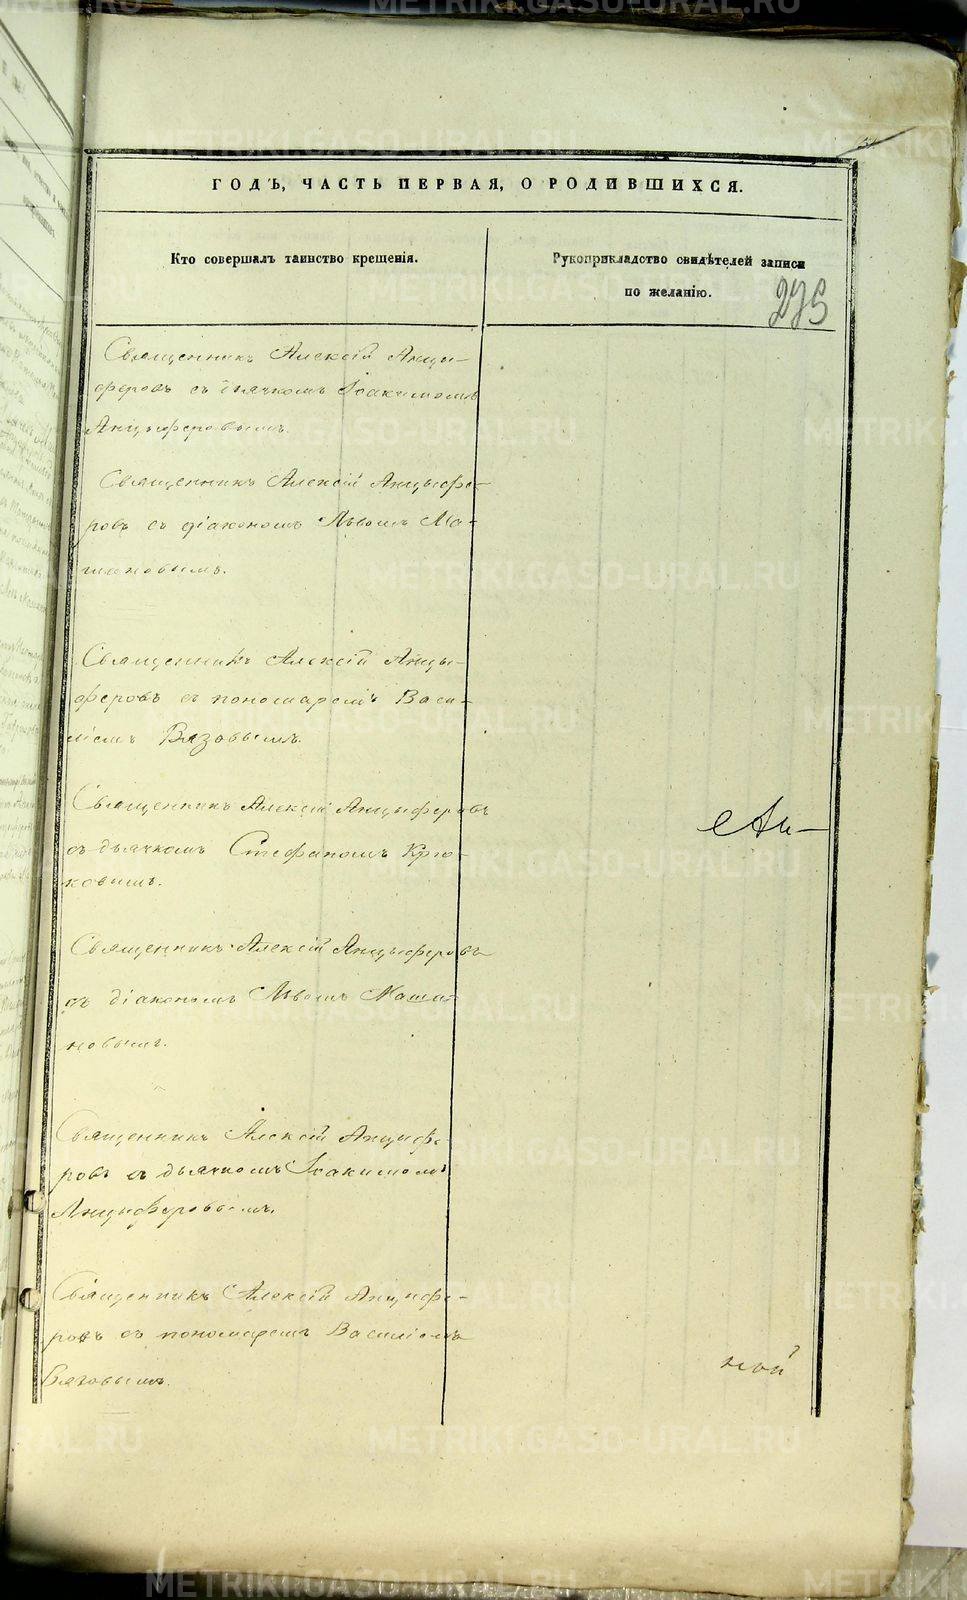 ГОДЪ, ЧАСТЬ ПЕРВАЯ, О РОДИВШИХСЯ.
Кто совершалъ таинство крещенія.
Рукоприкладство свидѣтелей записи
по желанію.
275
Священникъ Алексій Анцы-
феровъ съ дьячкомъ Іоакимомъ
Анцыферовымъ.
Священникъ Алексій Анцыфе-
ровъ съ діакономъ Львомъ Ма-
шановымъ.
Священникъ Алексій Анцы-
феровъ съ пономаремъ Васи-
ліемъ Вязовымъ.
Священникъ Алексій Анцыферовъ
съ дьячкомъ Стефаномъ Крю-
ковымъ.
Священникъ Алексій Анцыферовъ
съ діакономъ Львомъ Маша-
новымъ.
Священникъ Алексій Анцыфе-
ровъ съ дьячкомъ Іоакимомъ
Анцыферовымъ.
Священникъ Алексій Анцыфе-
ровъ съ пономаремъ Василіемъ
Вязовымъ.
ной
METRIKI.GASO-URAL.RU